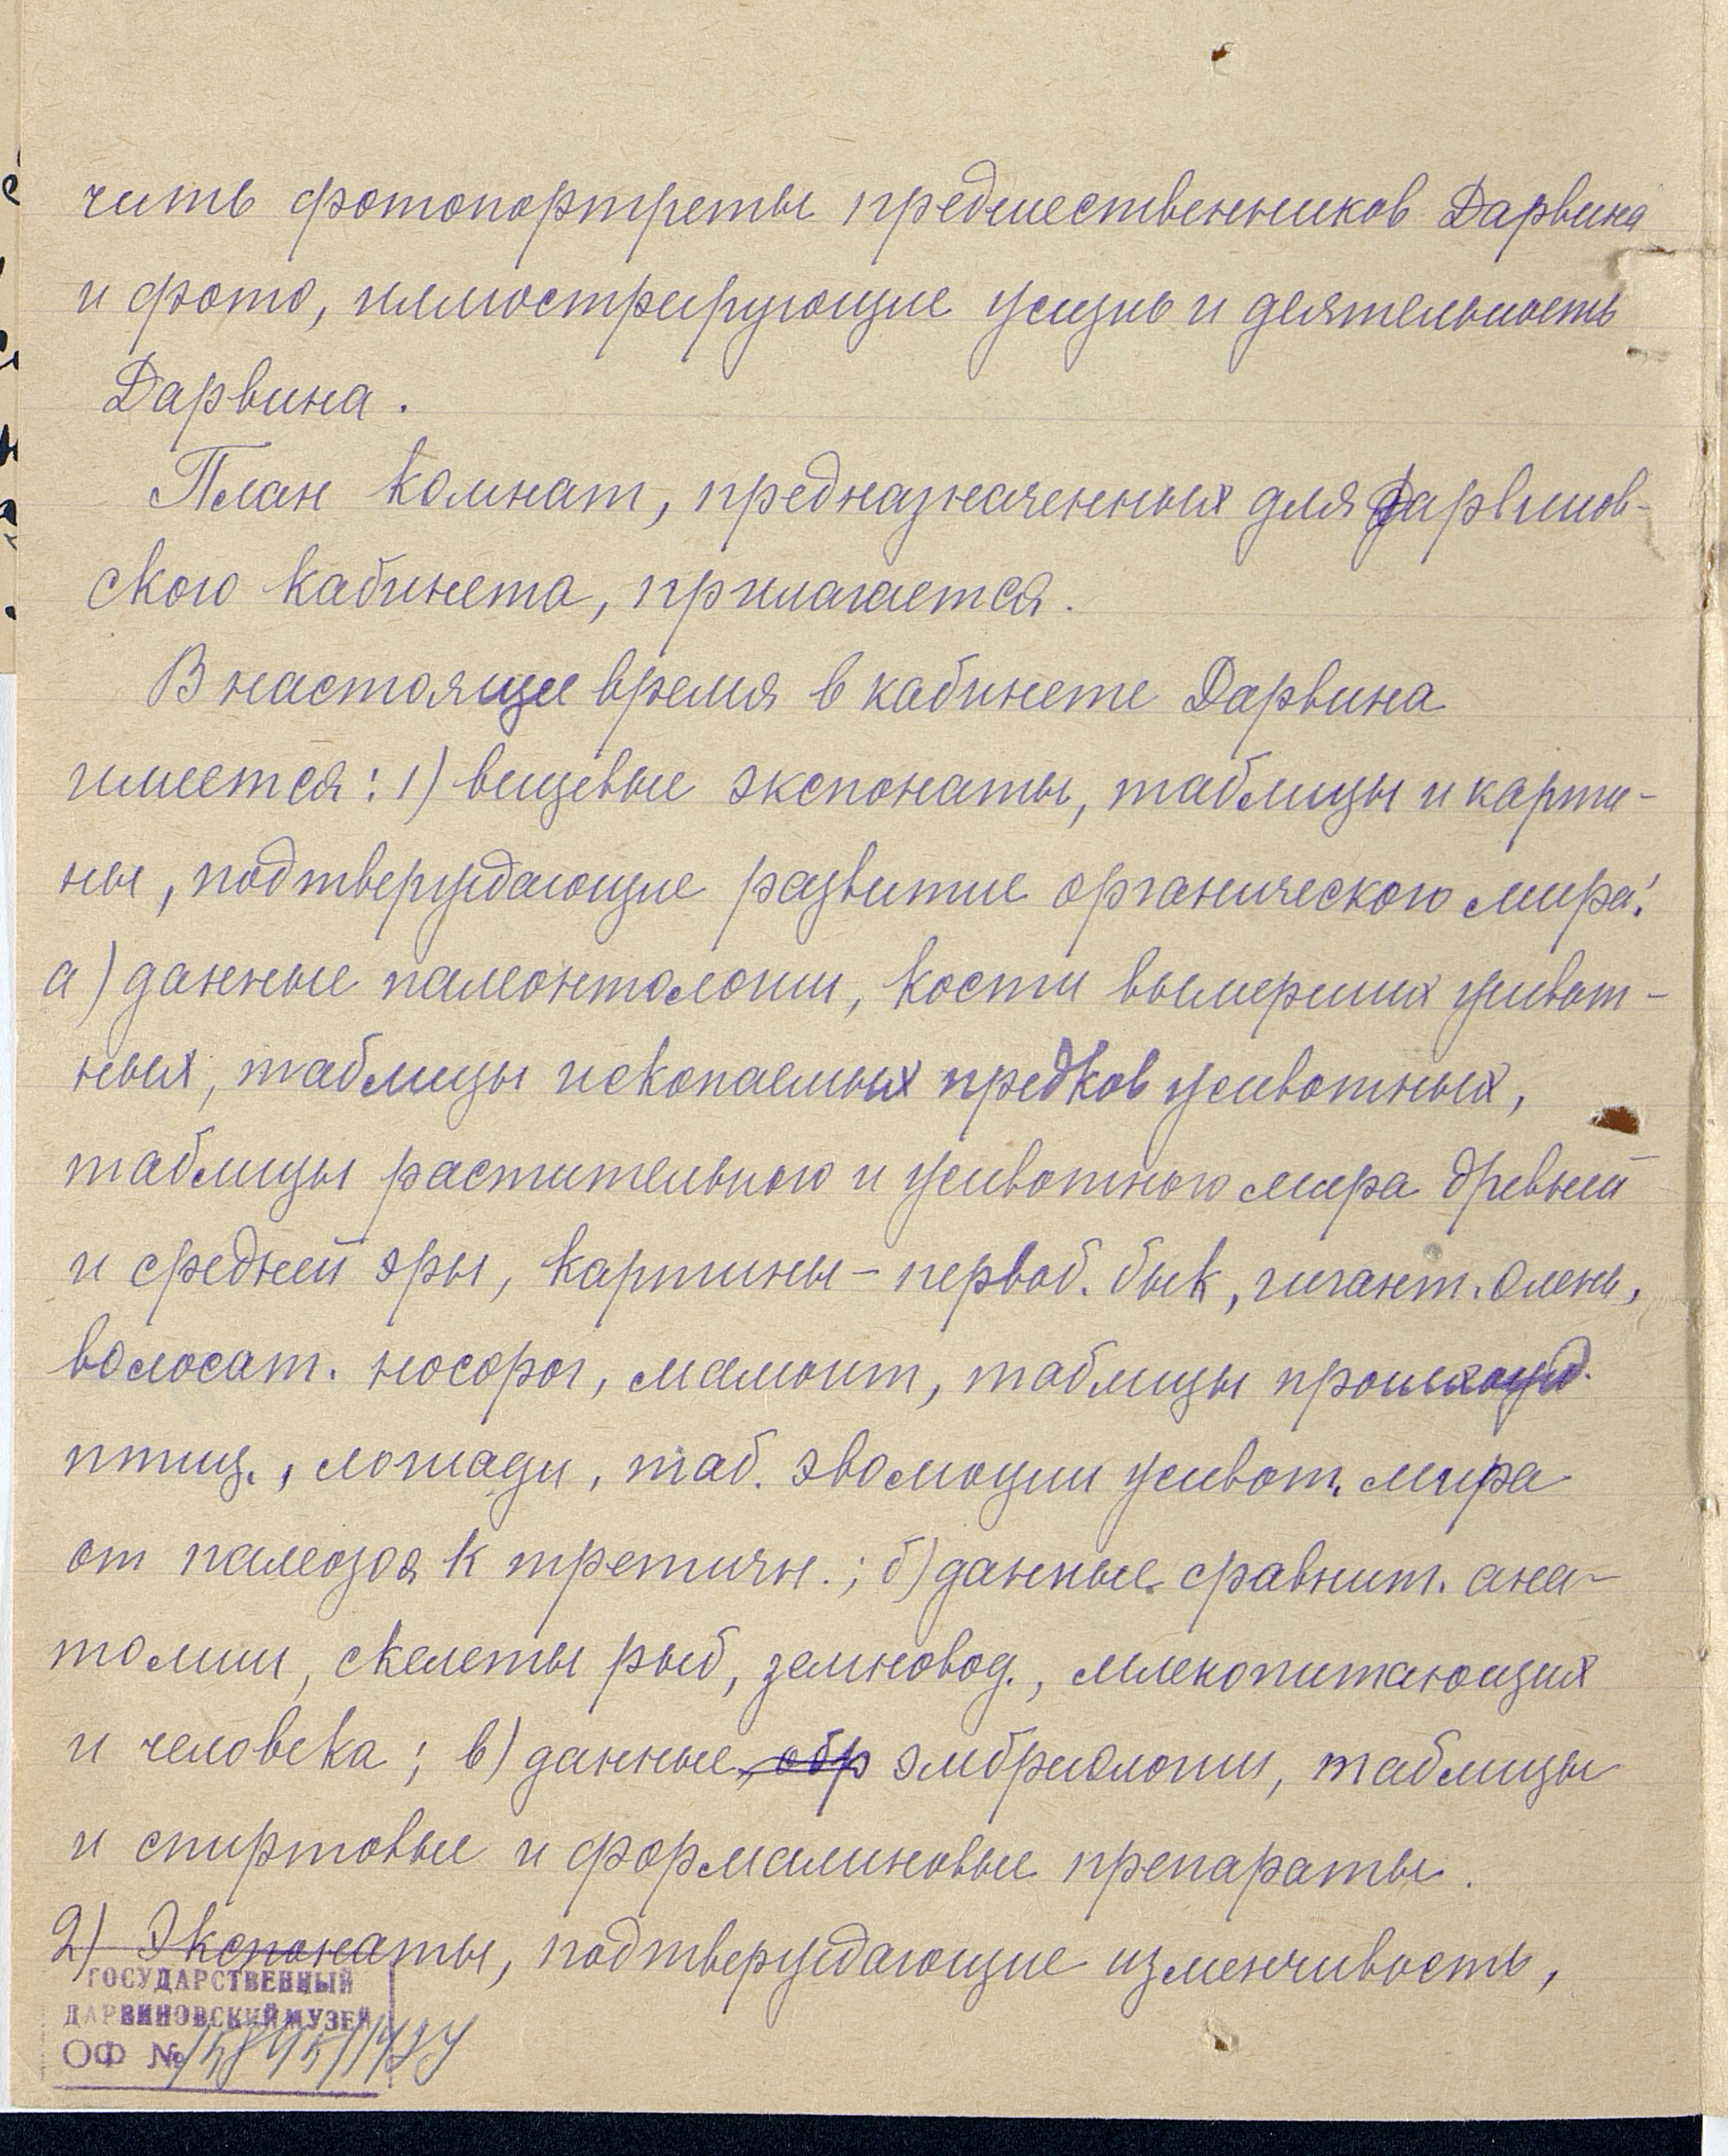 чить фотопортреты предшественников Дарвина
и фото, иллюстрирующие жизнь и деятельность
Дарвина.
План комнат, предназначенных для Дарвинов-
ского кабинета, прилагается.
В настоящее время в кабинете Дарвина
имеется: 1) вещевые экспонаты, таблицы и карти-
ны, подтверждающие развитие органического мира:
а) данные палеонтологии, кости вымерших живот-
ных, таблицы ископаемых предков животных,
таблицы растительного и животного мира древней
и средней эры, картины – первоб. бык, гигант. олень,
волосат. носорог, мамонт, таблицы происхожд.
птиц., лошади, таб. эволюции живот. мира
от палеозоя к третичн.; б) данные сравнит. ана-
томии, скелеты рыб, земновод., млекопитающих
и человека; в) данные обр эмбриологии, таблицы
и спиртовые и формалиновые препараты.
2) Экспонаты, подтверждающие изменчивость,
ГОСУДАРСТВЕННЫЙ
ДАРВИНОВСКИЙ МУЗЕЙ
ОФ №